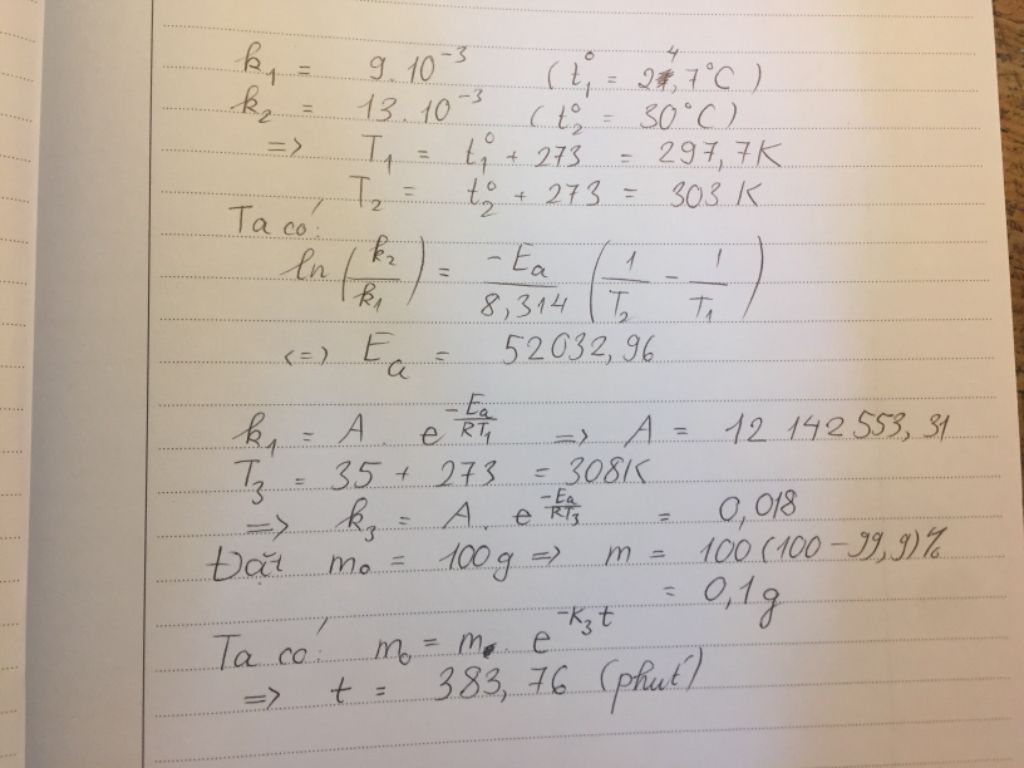 k₁ = 9.10⁻³ (t₁° = 24,7°C)
k₂ = 13.10⁻³ (t₂° = 30°C)
=> T₁ = t₁° + 273 = 297,7K
T₂ = t₂° + 273 = 303 K
Ta có:
ln (k₂/k₁) = -Ea/8,314 (1/T₂ - 1/T₁)
<=> Ea = 52032,96
k₁ = A. e^(-Ea/RT₁) => A = 12 142 553,31
T₃ = 35 + 273 = 308K
=> k₃ = A. e^(-Ea/RT₃) = 0,018
Đặt m₀ = 100g => m = 100(100-99,9)%
= 0,1g
Ta có: m₀ = m. e^(-k₃t)
=> t = 383,76 (phút)